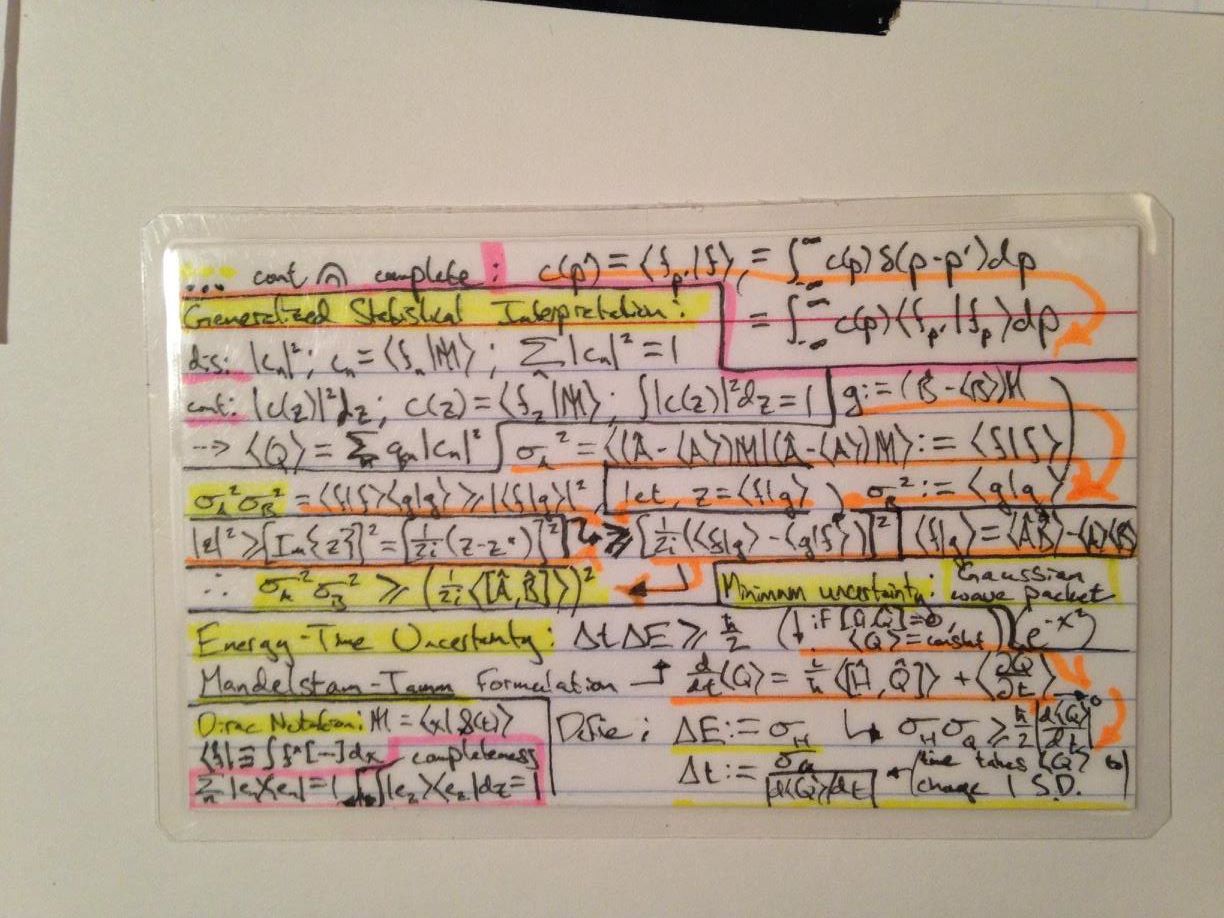 ... cont ∩ complete: c(p') = ⟨f_p'|f⟩, = ∫_-∞^∞ c(p) δ(p-p')dp
Generalized Statistical Interpretation: = ∫_-∞^∞ c(p)⟨f_p'|f_p⟩dp
dis: |c_n|²; c_n = ⟨f_n|Ψ⟩; Σ_n |c_n|² = 1
cont: |c(z)|²dz; c(z) = ⟨f_z|Ψ⟩; ∫|c(z)|²dz = 1 g := (B̂ - ⟨B⟩)Ψ
--> ⟨Q⟩ = Σ_n q_n|c_n|² σ_A² = ⟨(Â - ⟨A⟩)Ψ|(Â - ⟨A⟩)Ψ⟩ := ⟨f|f⟩
σ_A²σ_B² = ⟨f|f⟩⟨g|g⟩ ≥ |⟨f|g⟩|² let, z = ⟨f|g⟩ σ_B² := ⟨g|g⟩
|z|² ≥ [Im{z}]² = [1/2i (z-z*)]² ≥ [1/2i (⟨f|g⟩ - ⟨g|f⟩)]² ⟨f|g⟩ = ⟨ÂB̂⟩ - ⟨A⟩⟨B⟩
∴ σ_A²σ_B² ≥ (1/2i ⟨[Â,B̂]⟩)² Minimum uncertainty: Gaussian wave packet
Energy-Time Uncertainty: ΔtΔE ≥ ħ/2 (↓ if [Ĥ,Q̂]=0, ⟨Q⟩ = const) (e^-x²)
Mandelstam-Tamm Formulation → d/dt⟨Q⟩ = i/ħ ⟨[Ĥ,Q̂]⟩ + ⟨∂Q/∂t⟩ → 0
Dirac Notation: Ψ = ⟨x|S(t)⟩ Define: ΔE := σ_H ↳ σ_H σ_Q ≥ ħ/2 |d⟨Q⟩/dt|
⟨f| ≡ ∫f*[...]dx completeness Δt := σ_Q/|d⟨Q⟩/dt| ← (time takes ⟨Q⟩ to change 1 S.D.)
Σ_n |e_n⟩⟨e_n| = 1 ∫|e_z⟩⟨e_z|dz = 1